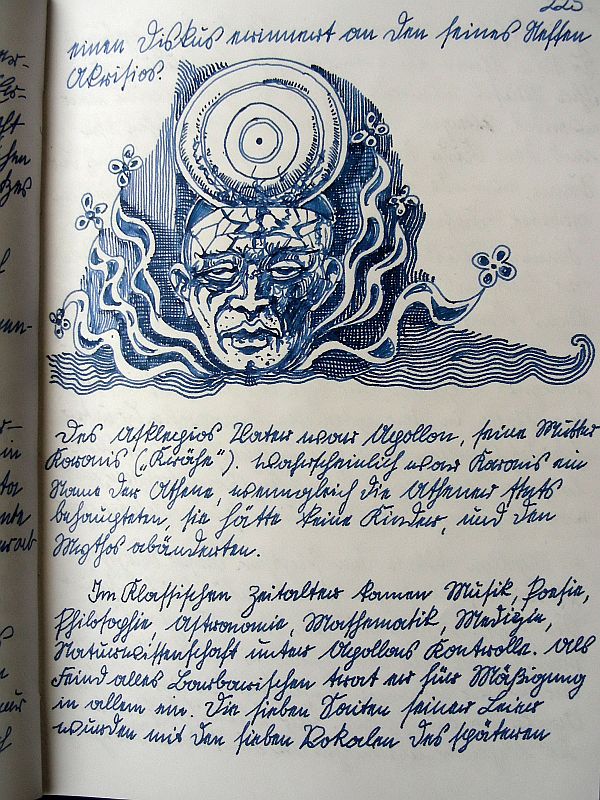 einen Diskus erinnert an den seines Neffen
Akrisios.
Des Asklepios Vater war Apollon, seine Mutter
Koronis („Krähe“). Wahrscheinlich war Koronis ein
Name der Athene, wenngleich die Athener stets
behaupteten, sie hätte keine Kinder, und den
Mythos abänderten.
Im Klassischen Zeitalter kamen Musik, Poesie,
Philosophie Astronomie, Mathematik, Medizin,
Naturwissenschaft unter Apollons Kontrolle. Als
Feind alles Barbarischen trat er für Mäßigung
in allem ein. Die sieben Saiten seiner Leier
wurden mit den sieben Vokalen des späteren